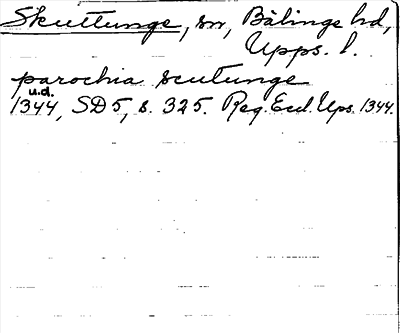 Skuttunge, sn, Bälinge hd,
Upps. l.
parochia scutunge
u.d.
1344, SD 5, s. 325. Reg. Eccl. Ups. 1344.